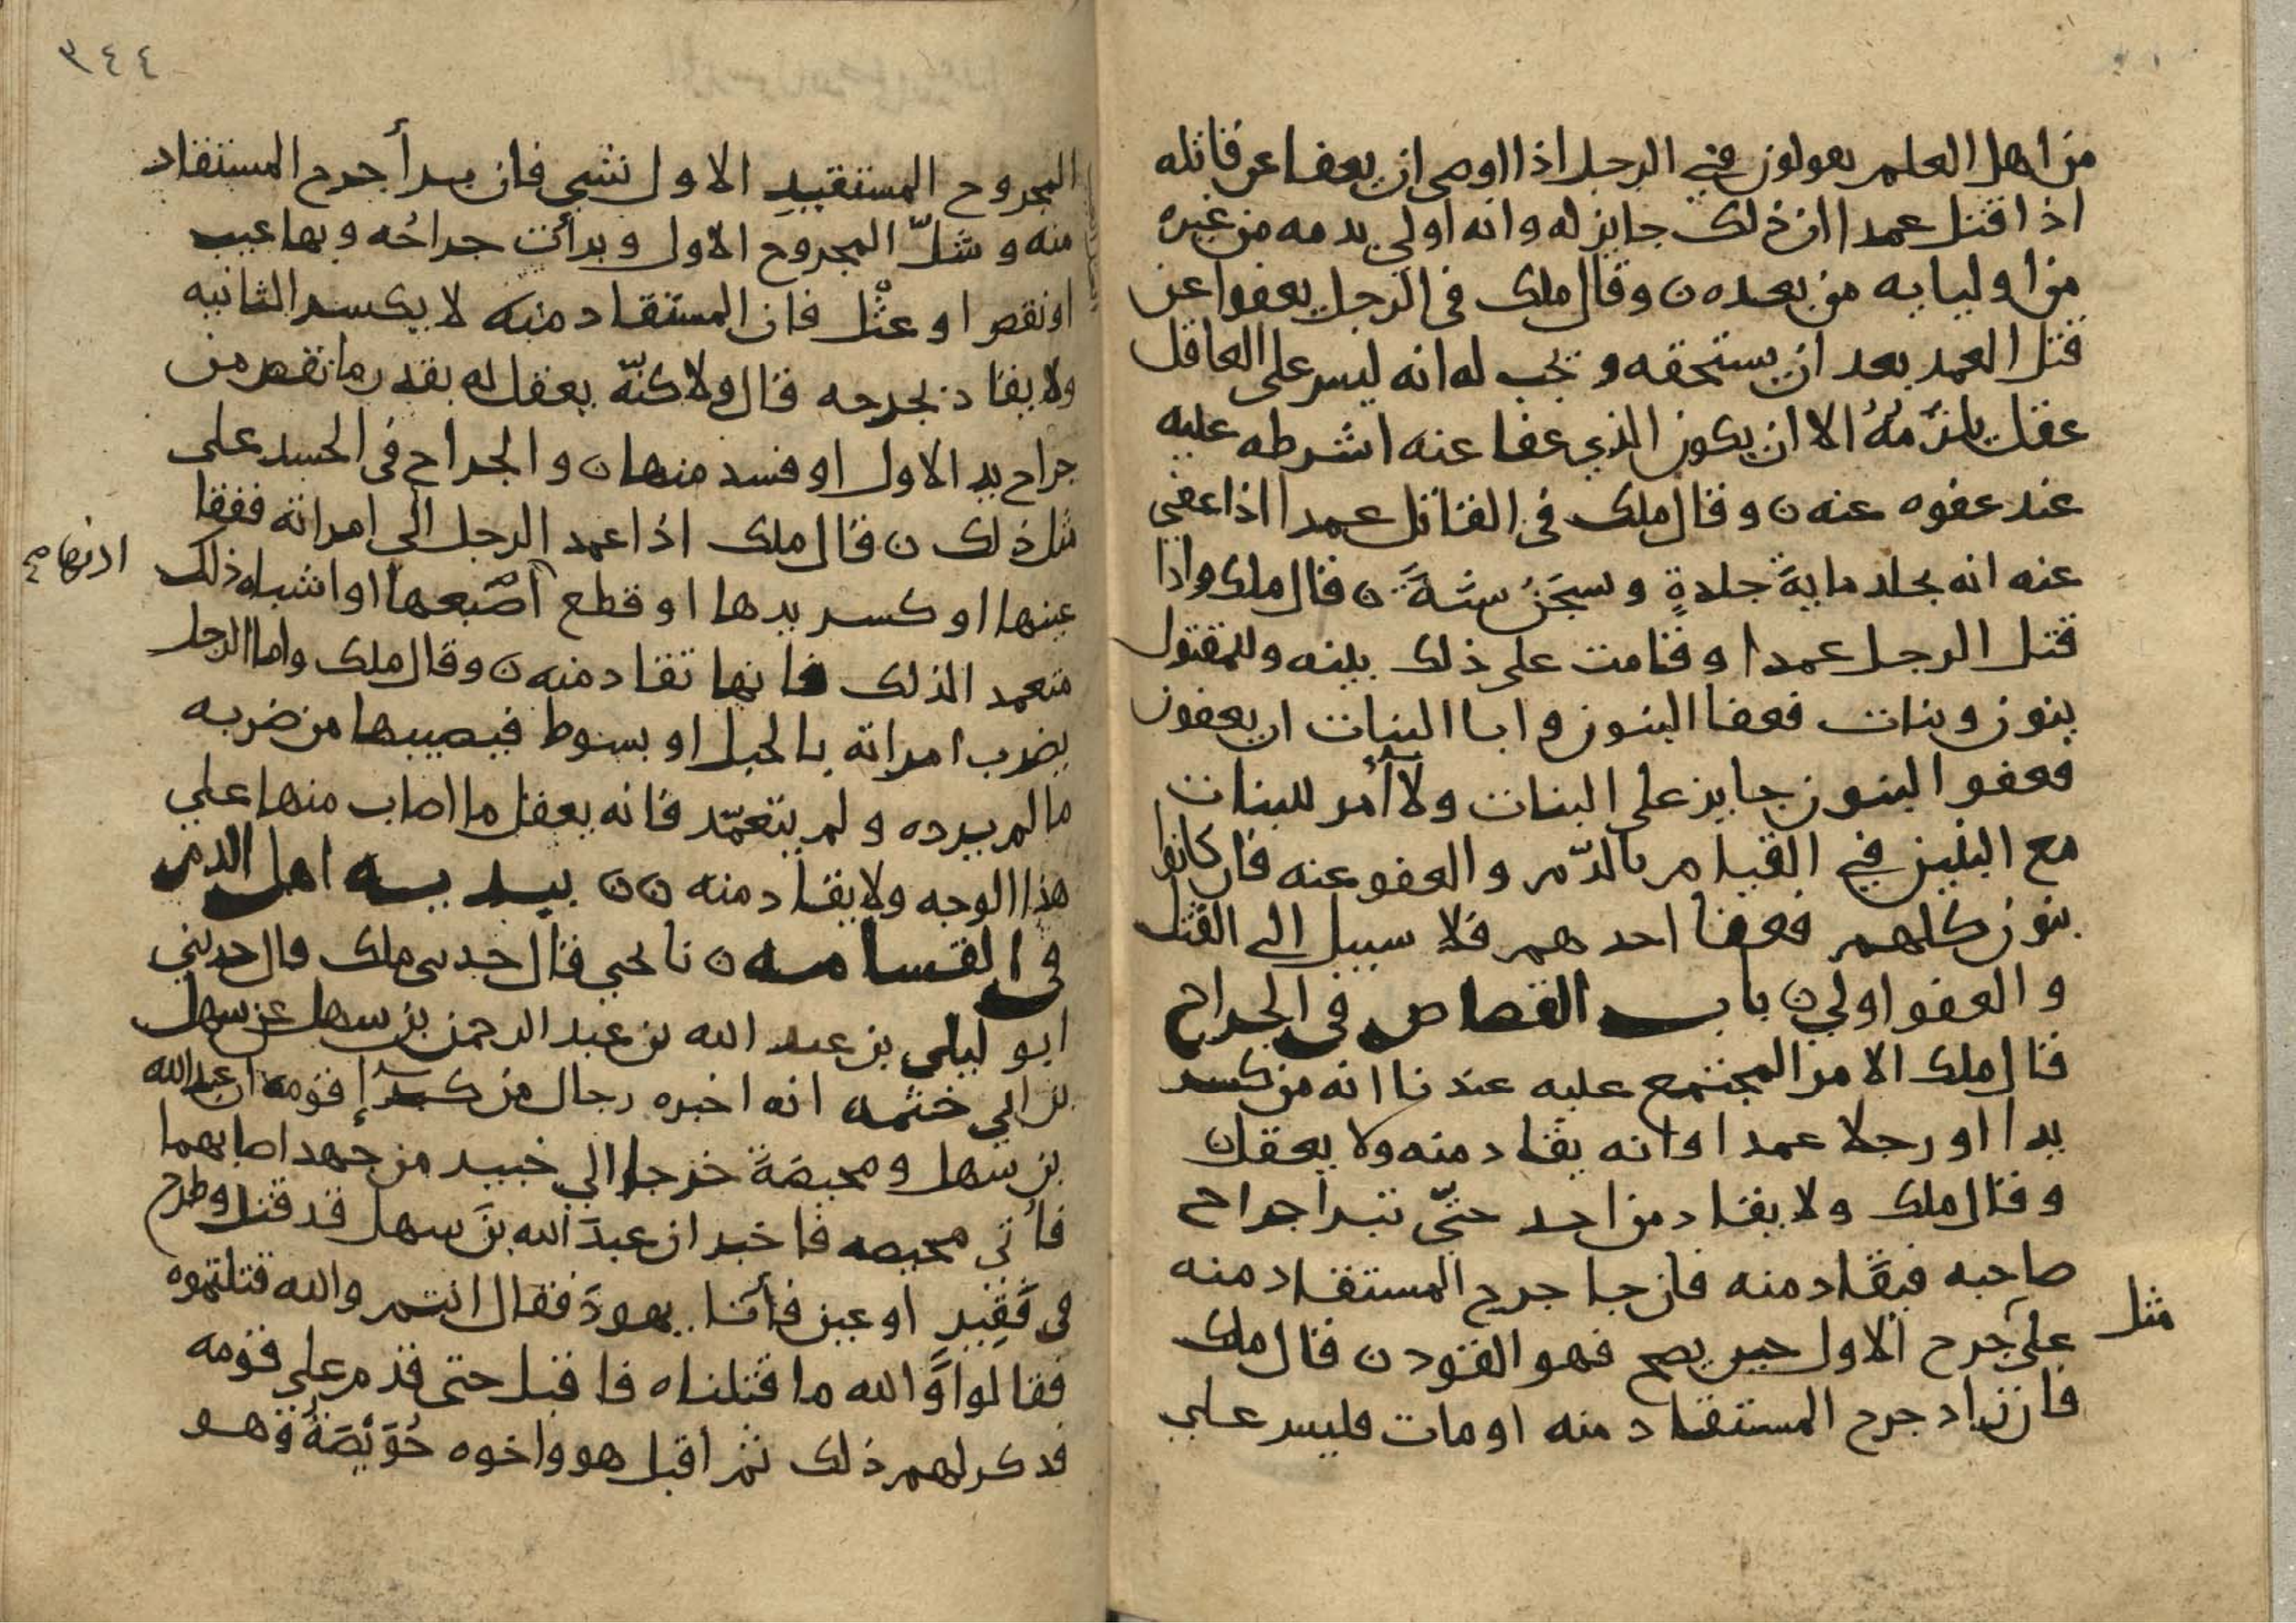 من اهل العلم يقولون في الرجل اذا اوصى ان يعفا عن قاتله
اذا قتل عمدا ان ذلك جايز له وانه اولي بدمه من غيره
من اوليايه من بعده ن وقال ملك في الرجل يعفوا عن
قتل العمد بعد ان يستحقه و تجب له انه ليس على القاتل
عقل يلزمه الا ان يكون الذي عفا عنه اشترطه عليه
عند عفوه عنه ن وقال ملك في القاتل عمدا اذا عفي
عنه انه يجلد ماية جلدة و يسجن سنة ن قال ملك واذا
قتل الرجل عمدا و قامت على ذلك بينه وللمقتول
بنون وبنات فعفا البنون وابا البنات ان يعفون
فعفو البنون جايز على البنات ولا أمر للبنات
مع البنين في القيام بالدم والعفو عنه فان كانوا
بنون كلهم فعفا احدهم فلا سبيل الى القتل
والعفو اولي ن باب القصاص في الجراح
قال ملك الامر المجتمع عليه عندنا انه من كسر
يدا او رجلا عمدا فانه يقاد منه ولا يعقل ن
وقال ملك ولا يقاد من احد حتّى تبرا جراح
صاحبه فيقاد منه فان جا جرح المستقاد منه
مثل
على جرح الاول حين يصح فهو القود ن قال ملك
فان زاد جرح المستقاد منه او مات فليس على
٣٤٤
المجروح المستقيد الاول شي فان برأ جرح المستقاد
منه و شلّ المجروح الاول و برأت جراحه و بها عيب
او نقص او عثل فان المستقاد منه لا يكسر الثانيه
ولا يقاد بجرحه قال ولاكنّه يعقل له بقدر ما نقص من
جراح يد الاول او فسد منها ن والجراح في الجسد على
مثل ذلك ن قال ملك اذا عمد الرجل الى امراته ففقا
عينها او كسر يدها او قطع أصبعها او اشباه ذلك
اذنها صح
متعمدا لذلك فانها تقاد منه ن وقال ملك واما الرجل
يضرب امراته بالحبل او بسوط فيصيبها من ضربه
ما لم يرده و لم يتعمّد فانه يعقل ما اصاب منها علي
هذا الوجه ولا يقاد منه ن ن اهل الدم
في القسامه ن نا يحيى قال حدثني ملك قال حدثني
ابو ليلى بن عبد الله بن عبد الرحمن بن سهل عن سهل
بن ابي خثمه انه اخبره رجال من كبرا قومه ان عبد الله
بن سهل ومحيصة خرجا الي خيبر من جهد اصابهما
فأتي محيصه فاخبر ان عبد الله بن سهل قد قتل وطرح
في فقير او عين فأتا يهود فقال انتم والله قتلتموه
فقالوا والله ما قتلناه فاقبل حتى قدم على قومه
فذكر لهم ذلك ثم اقبل هو واخوه حُوَيّصَة وهو